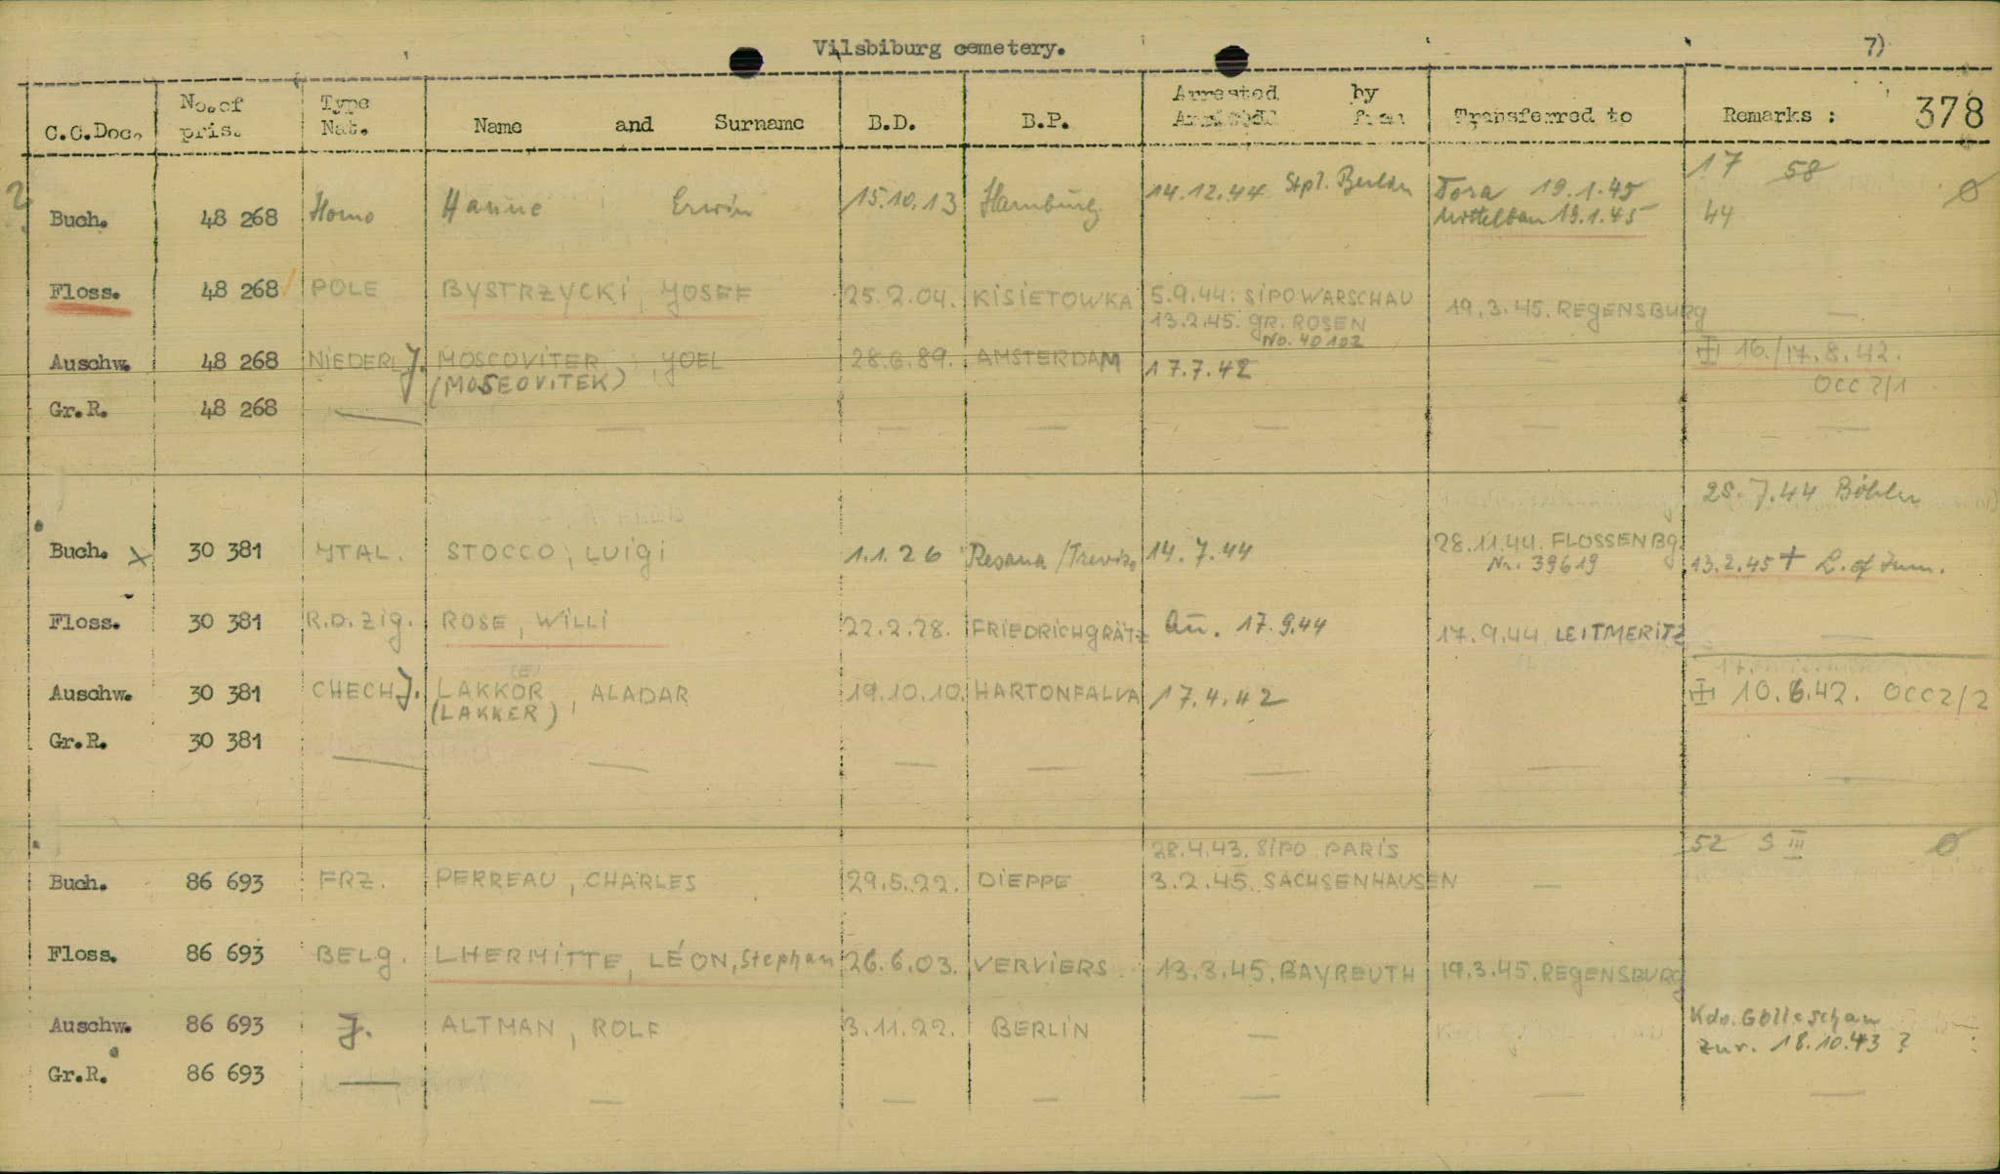 Vilsbiburg cemetery. 7)
C.C.Doc. No.of pris. Type Nat. Name and Surname B.D. B.P. Arrested by Transferred to Remarks : 378
17 58
Buch. 48 268 Homo Hanne Erwin 15.10.13 Hamburg 14.12.44 Stpl. Berlin Dora 19.1.45 Ø
Mittelbau 19.1.45 44
Floss. 48 268 POLE BYSTRZYCKI, JOSEF 25.2.04. KISIETOWKA 5.9.44: SIPO WARSCHAU 19.3.45. REGENSBURG —
13.2.45. GR. ROSEN
No. 40102
Auschw. 48 268 NIEDERL J. MOSCOVITER, JOEL 28.6.89. AMSTERDAM 17.7.42 16./17.8.42.
(MOSEOVITEK) OCC 2/1
Gr.R. 48 268 — — — — — — —
25.7.44 Böhlen
Buch. X 30 381 YTAL. STOCCO, LUIGI 1.1.26 Resana /Treviso 14.7.44 28.11.44. FLOSSENBG.
Nr. 39619 13.2.45 + L. of Inm.
Floss. 30 381 R.D. Zig. ROSE, WILLI 22.2.28. FRIEDRICHGRÄTZ Au. 17.9.44 17.9.44 LEITMERITZ —
(E)
Auschw. 30 381 CHECH J. LAKKOR, ALADAR 19.10.10. HARTONFALVA 17.4.42 10.6.42. OCC2/2
(LAKKER)
Gr.R. 30 381 — — — — — — —
28.4.43. SIPO PARIS 52 S III Ø
Buch. 86 693 FRZ. PERREAU, CHARLES 29.5.22. DIEPPE 3.2.45. SACHSENHAUSEN —
Floss. 86 693 BELG. LHERMITTE, LÉON, Stephan 26.6.03. VERVIERS 13.3.45. BAYREUTH 19.3.45. REGENSBURG
Auschw. 86 693 J. ALTMAN, ROLF 3.11.22. BERLIN — Kdo. Golleschau
zur. 18.10.43 ?
Gr.R. 86 693 — — — — — — —